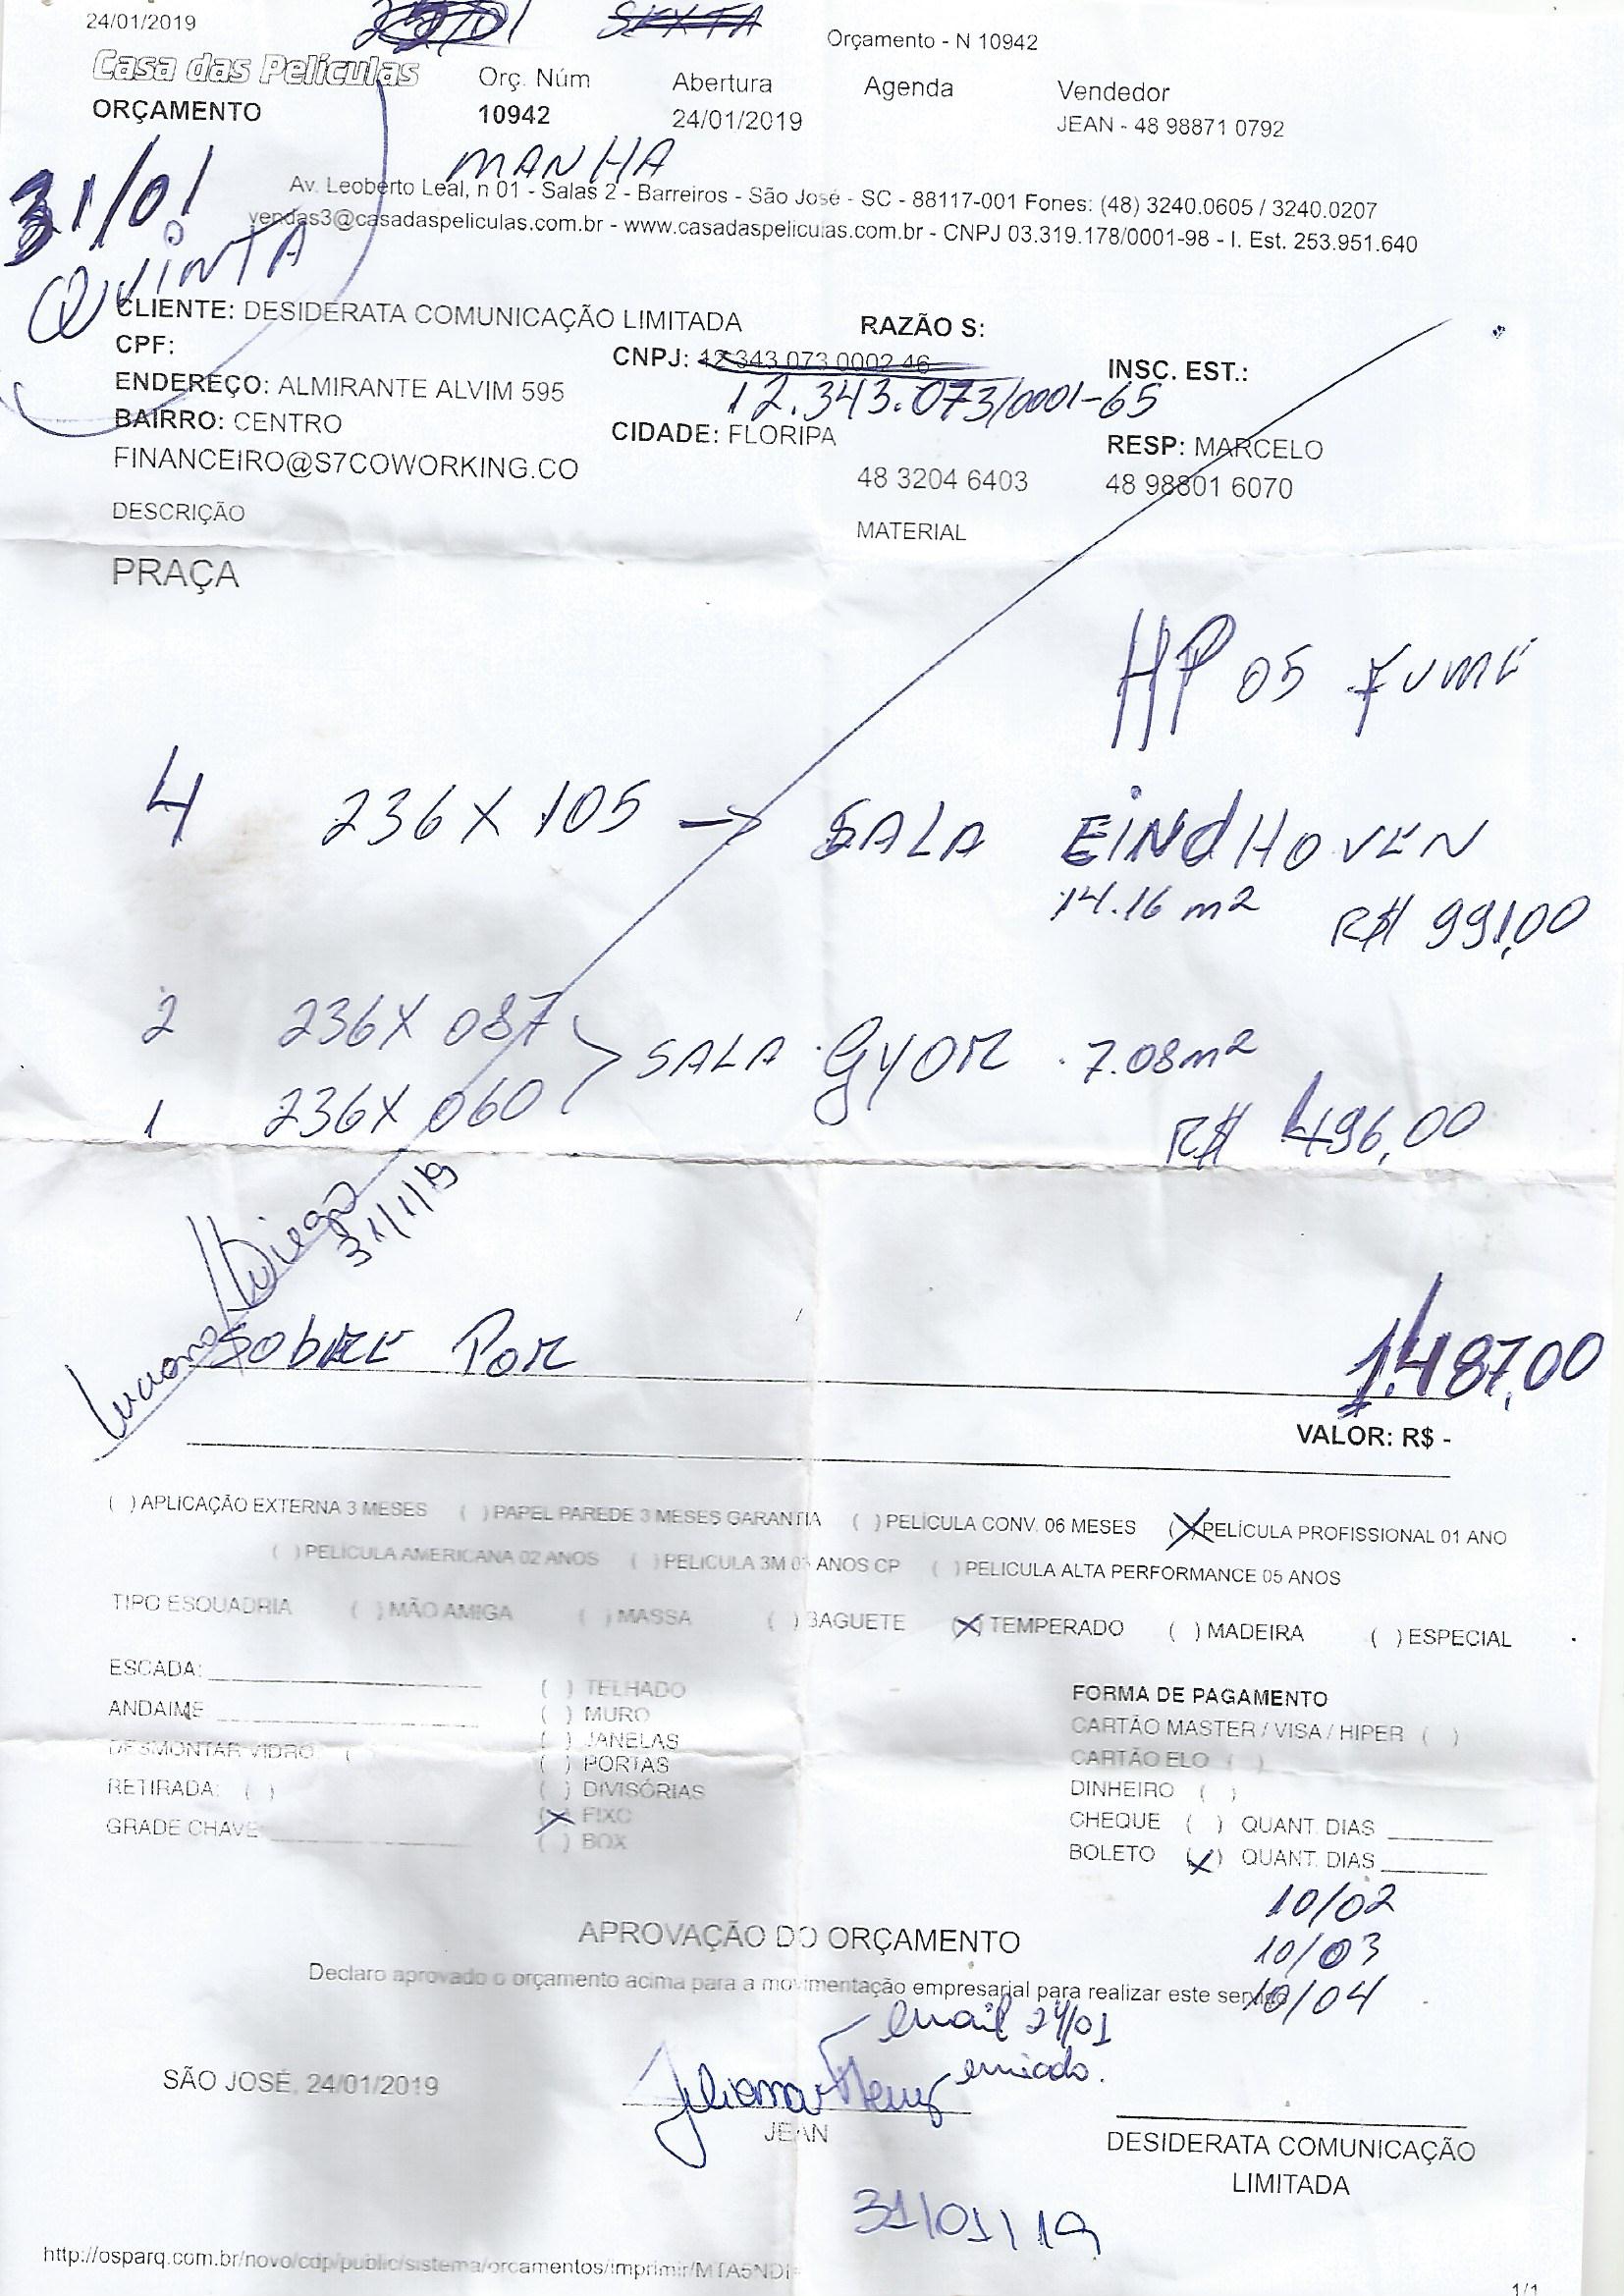 24/01/2019
25/01 SEXTA
Orçamento - N 10942
Casa das Películas
Orç. Núm
Abertura
Agenda
Vendedor
ORÇAMENTO
10942
24/01/2019
JEAN - 48 98871 0792
31/01
MANHA
QUINTA
Av. Leoberto Leal, n 01 - Salas 2 - Barreiros - São José - SC - 88117-001 Fones: (48) 3240.0605 / 3240.0207
vendas3@casadaspeliculas.com.br - www.casadaspeliculas.com.br - CNPJ 03.319.178/0001-98 - I. Est. 253.951.640
CLIENTE: DESIDERATA COMUNICAÇÃO LIMITADA
RAZÃO S:
CPF:
CNPJ: 12.343.073.0002.46
INSC. EST.:
12.343.073/0001-65
ENDEREÇO: ALMIRANTE ALVIM 595
BAIRRO: CENTRO
CIDADE: FLORIPA
RESP: MARCELO
FINANCEIRO@S7COWORKING.CO
48 3204 6403
48 98801 6070
DESCRIÇÃO
MATERIAL
PRAÇA
HP 05 FUME
4 236 X 105 → SALA EINDHOVEN
14.16 m2 R$ 991,00
2 236 X 087
SALA GYOR 7.08 m2
1 236 X 060
R$ 496,00
Luciano/Diego
31/1/19
SOBRE POR
1.487,00
VALOR: R$ -
( ) APLICAÇÃO EXTERNA 3 MESES ( ) PAPEL PAREDE 3 MESES GARANTIA ( ) PELÍCULA CONV. 06 MESES (X) PELÍCULA PROFISSIONAL 01 ANO
( ) PELÍCULA AMERICANA 02 ANOS ( ) PELICULA 3M ANOS CP ( ) PELICULA ALTA PERFORMANCE 05 ANOS
TIPO ESQUADRIA ( ) MÃO AMIGA ( ) MASSA ( ) BAGUETE (X) TEMPERADO ( ) MADEIRA ( ) ESPECIAL
ESCADA:
ANDAIME
DESMONTAR VIDRO: (
RETIRADA: ( )
GRADE CHAVE
( ) TELHADO
( ) MURO
( ) JANELAS
( ) PORTAS
( ) DIVISÓRIAS
(X) FIXO
( ) BOX
FORMA DE PAGAMENTO
CARTÃO MASTER / VISA / HIPER ( )
CARTÃO ELO ( )
DINHEIRO ( )
CHEQUE ( ) QUANT. DIAS
BOLETO (X) QUANT. DIAS
10/02
10/03
10/04
APROVAÇÃO DO ORÇAMENTO
Declaro aprovado o orçamento acima para a movimentação empresarial para realizar este serviço
email 24/01
enviado.
SÃO JOSÉ, 24/01/2019
Juliana
JEAN
DESIDERATA COMUNICAÇÃO
LIMITADA
31/01/19
http://osparq.com.br/novo/cdp/public/sistema/orcamentos/imprimir/MTA5NDI=
1/1